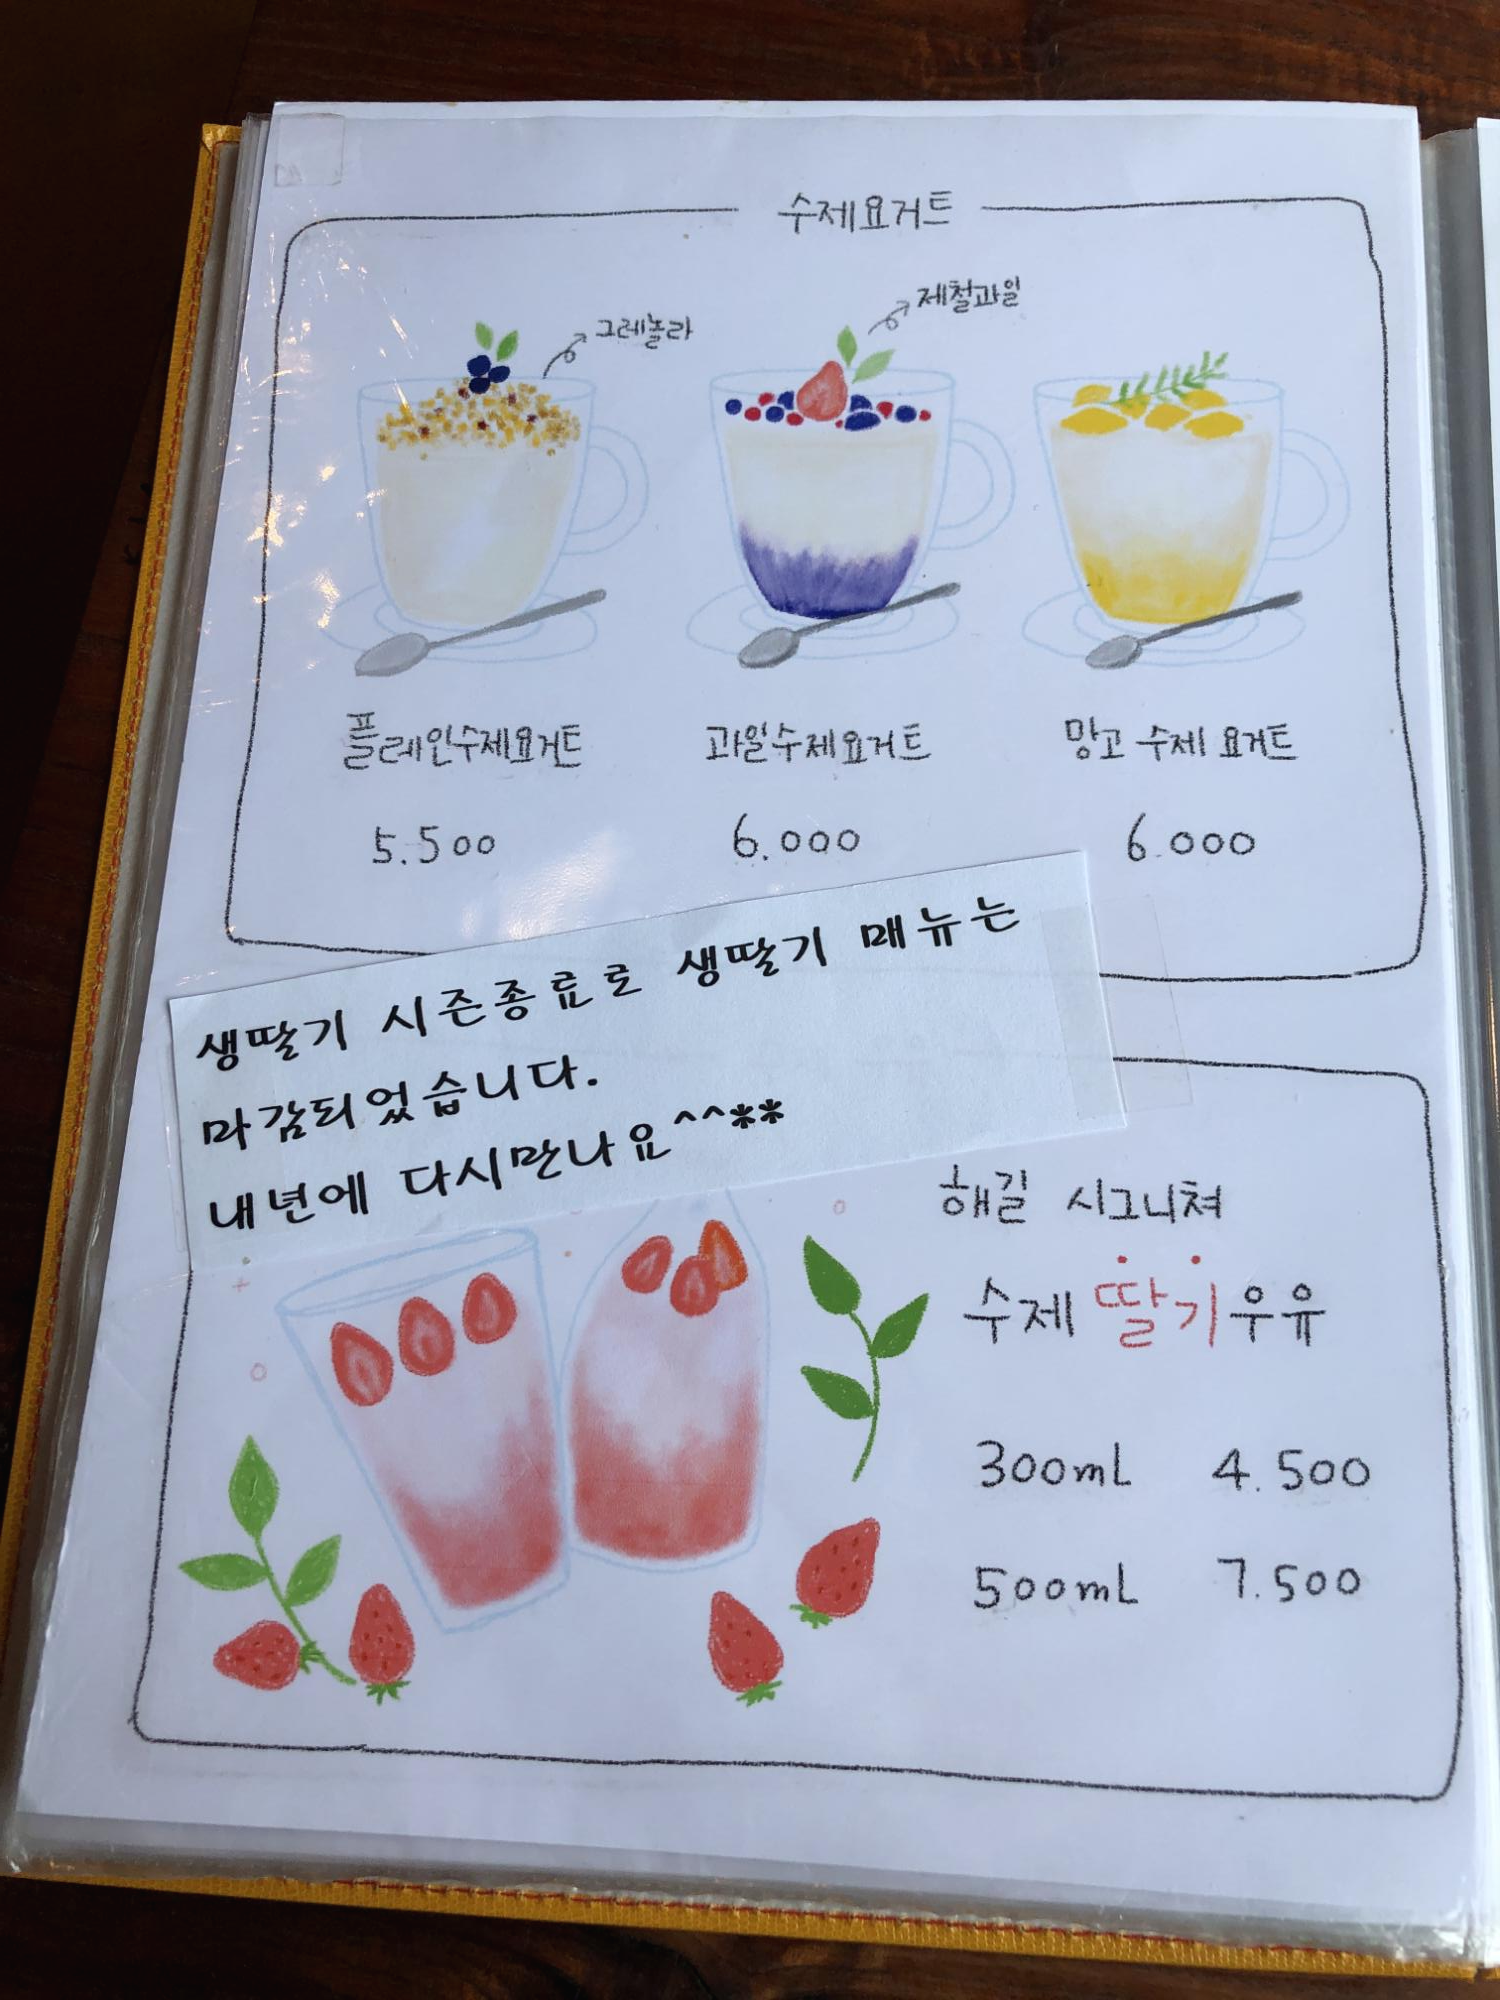 수제요거트
그레놀라
제철과일
플레인수제요거트
과일수제요거트
망고 수제 요거트
5.500
6.000
6.000
생딸기 시즌종료로 생딸기 매뉴는
마감되었습니다.
내년에 다시만나요^^**
해길 시그니쳐
수제 딸기우유
300mL 4.500
500mL 7.500